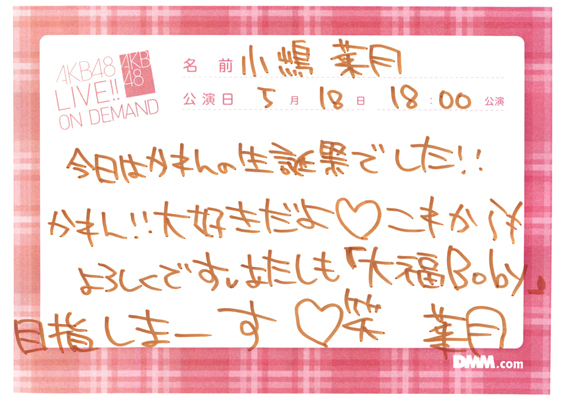 AKB48
LIVE!!
ON DEMAND
AKB
48
名前 小嶋 菜月
公演日 5月18日 18:00公演
今日はかれんの生誕祭でした!!
かれん!!大好きだよ♡これからも
よろしくです。わたしも「大福Boby」
目指しまーす♡笑 菜月
DMM.com